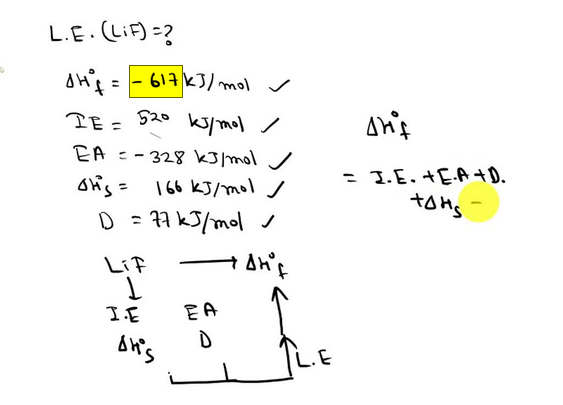 L.E. (LiF) = ?
ΔH°f = -617 kJ/mol ✓
IE = 520 kJ/mol ✓
EA = -328 kJ/mol ✓
ΔH°s = 166 kJ/mol ✓
D = 77 kJ/mol ✓
ΔH°f
= I.E. + E.A + D.
+ ΔHs -
LiF → ΔH°f
↓
I.E EA
ΔH°s D
L.E